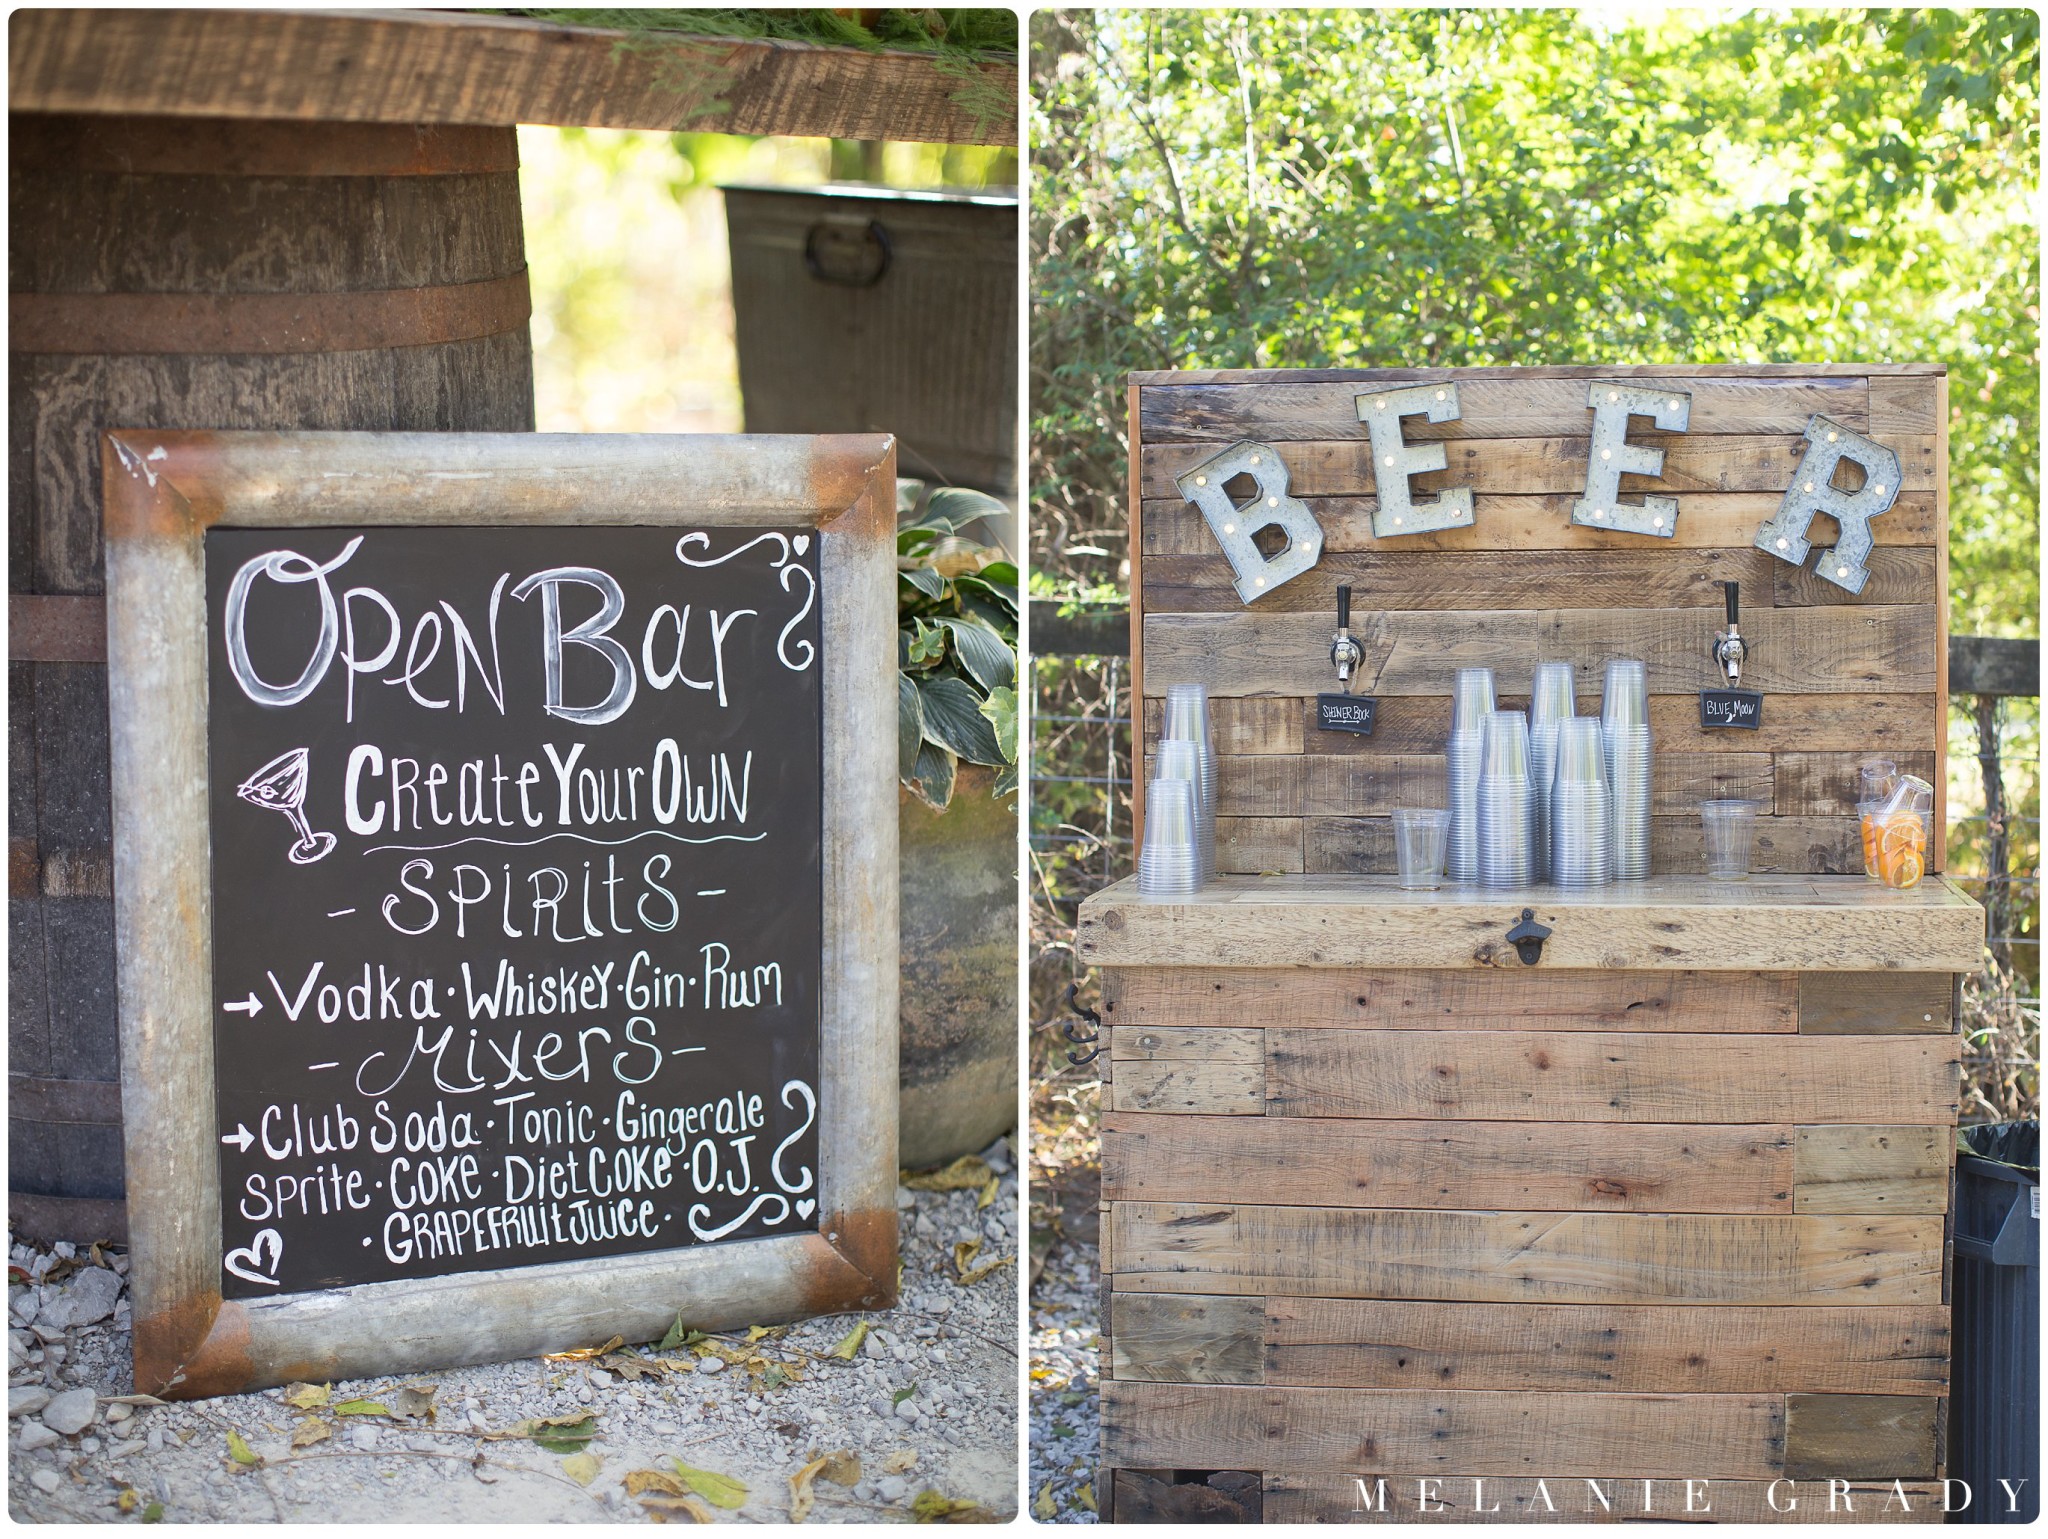 Open Bar
Create Your Own
- Spirits -
→ Vodka · Whiskey · Gin · Rum
- Mixers -
→ Club Soda · Tonic · Gingerale
Sprite · Coke · Diet Coke · O.J.
· Grapefruit Juice ·
BEER
SHINER BOCK
BLUE MOON
MELANIE GRADY